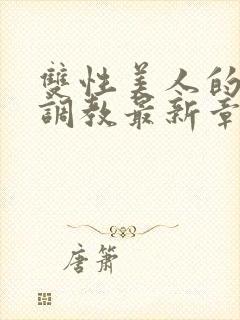 雙性美人的
調教最新章
唐簫